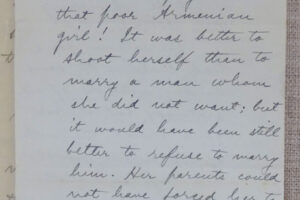 that poor Armenian
girl! It was better to
shoot herself than to
marry a man whom
she did not want; but
it would have been still
better to refuse to marry
him. Her parents could
not have forced her to